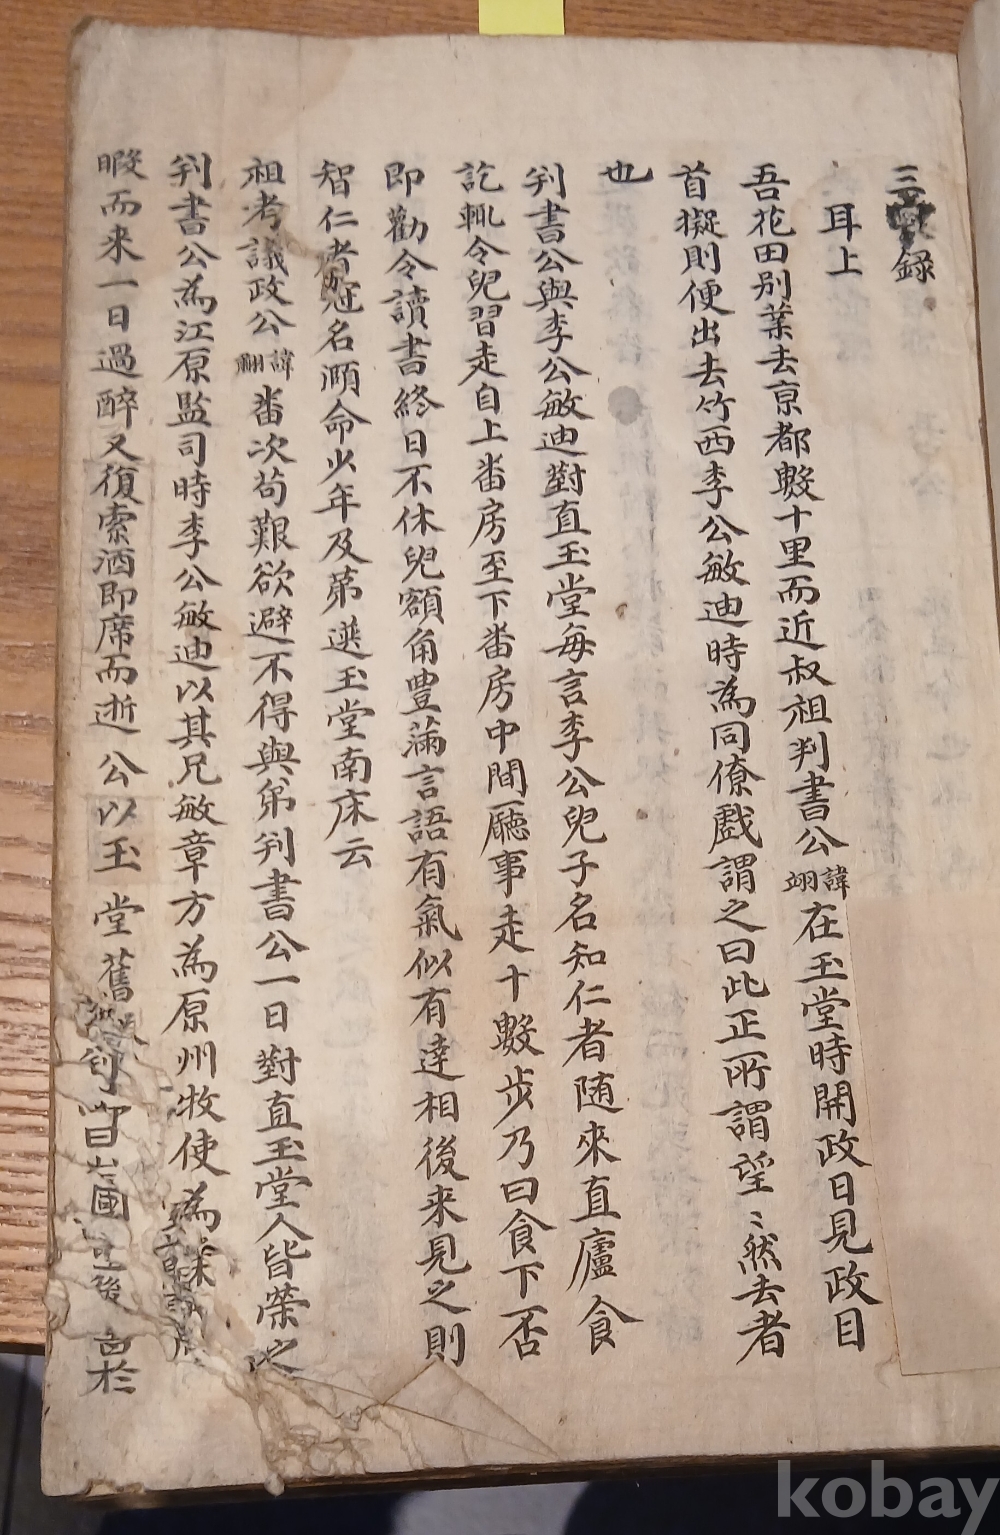 三官録
耳上
吾花田别業去京都數十里而近叔祖判書公諱翊在玉堂時開政日見政目
首擬則便出去竹西李公敏迪時為同僚戲謂之曰此正所謂望〻然去者
也
判書公與李公敏迪對直玉堂每言李公兒子名知仁者随來直廬食
訖輒令兒習走自上畨房至下畨房中間廳事走十數步乃曰食下否
即勸令讀書終日不休兒額角豊滿言語有氣似有達相後来見之則
智仁者冠名頤命少年及第選玉堂南床云
祖考議政公諱翻畨次苟艱欲避不得與弟判書公一日對直玉堂人皆榮之
判書公為江原監司時李公敏迪以其兄敏章方為原州牧使為
暇而来一日過醉又復索酒即席而逝公以玉堂舊
kobay